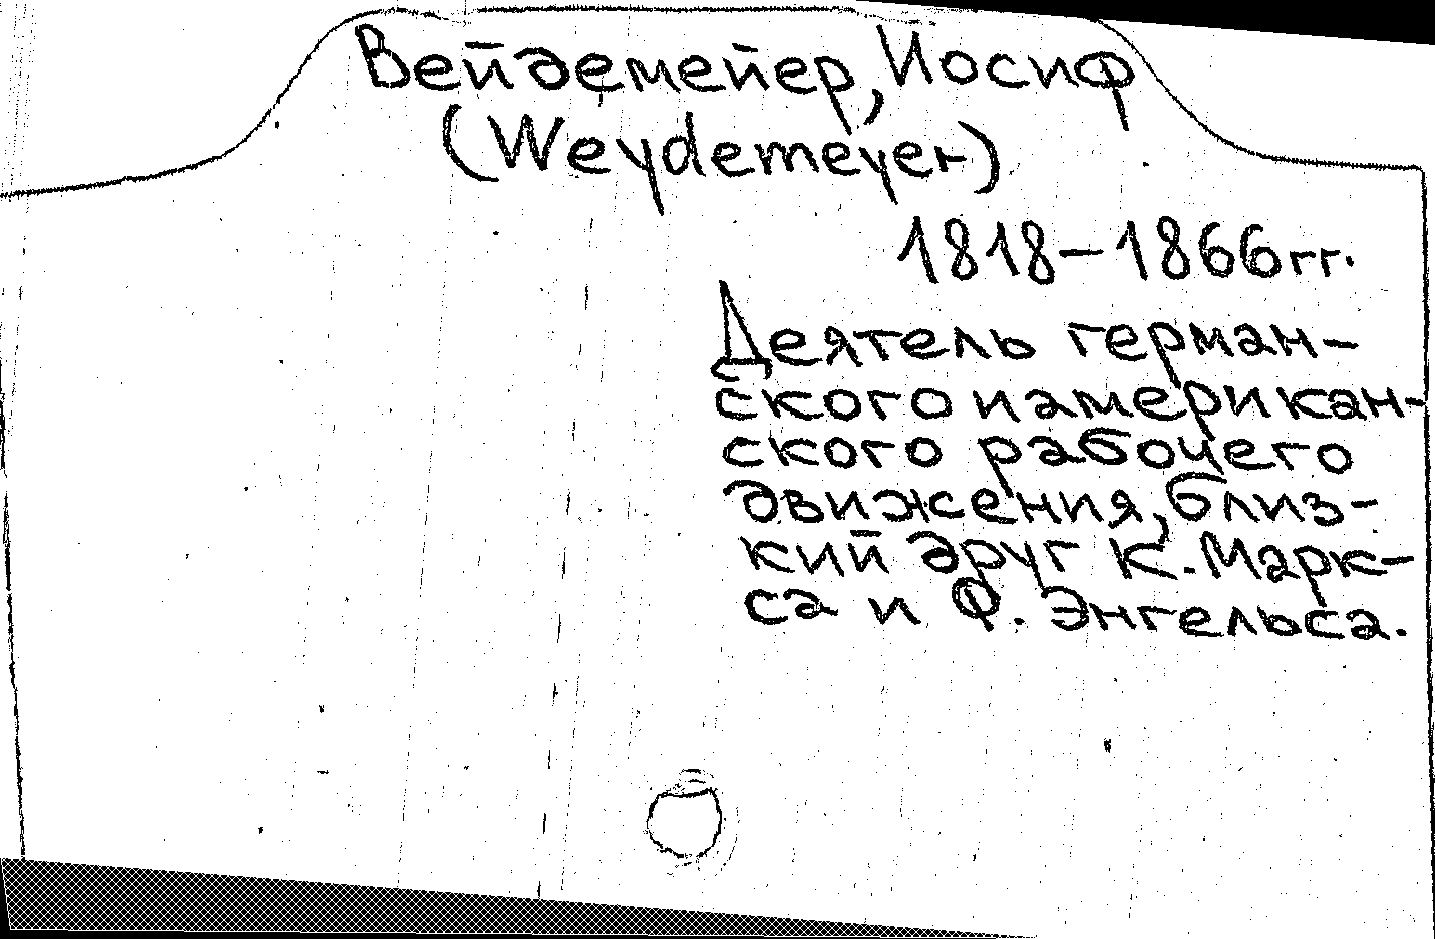 Вейдемейер, Иосиф
(Weydemeyer)
1818–1866 гг.
Деятель герман-
ского и американ-
ского рабочего
движения, близ-
кий друг К. Марк-
са и Ф. Энгельса.